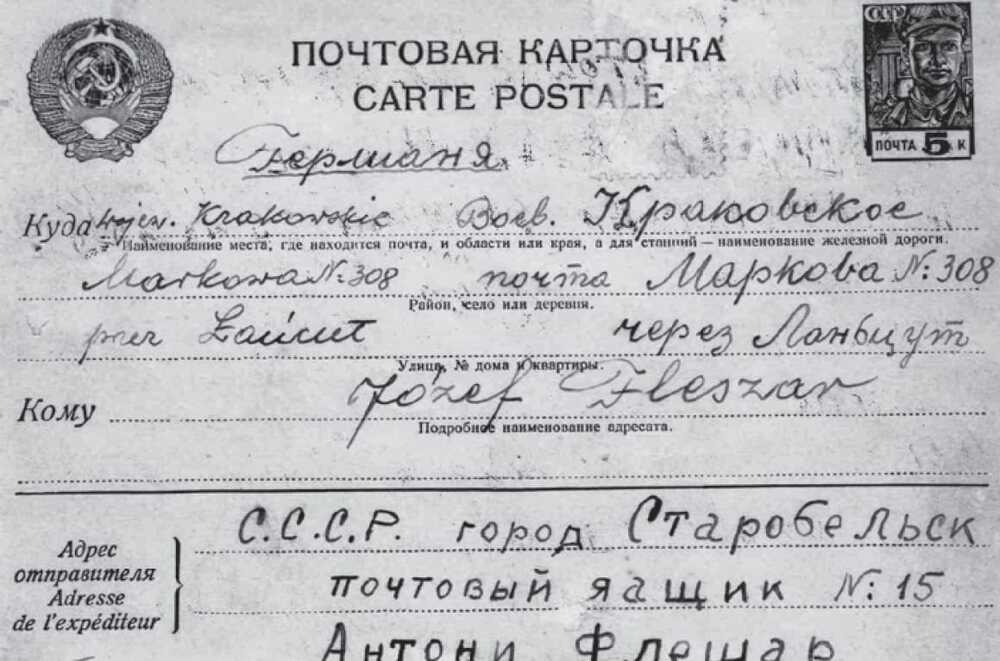 ПОЧТОВАЯ КАРТОЧКА
CARTE POSTALE
СССР
ПОЧТА 5 К
Германия
Куда wojew. Krakowskie Воев. Краковское
Наименование места, где находится почта, и области или края, а для станций — наименование железной дороги.
Markowa N: 308 почта Маркова N: 308
Район, село или деревня.
przez Łańcut через Ланьцут
Улица, № дома и квартиры.
Кому Józef Fleszar
Подробное наименование адресата.
С.С.С.Р. город Старобельск
Адрес отправителя
Adresse de l'expéditeur
почтовый ящик N: 15
Антони Флешар